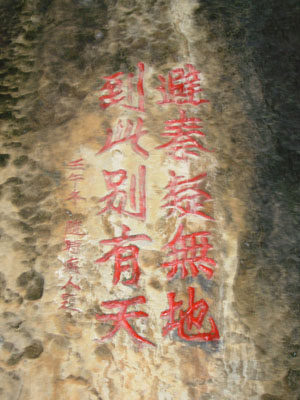 避秦疑無地
到此別有天